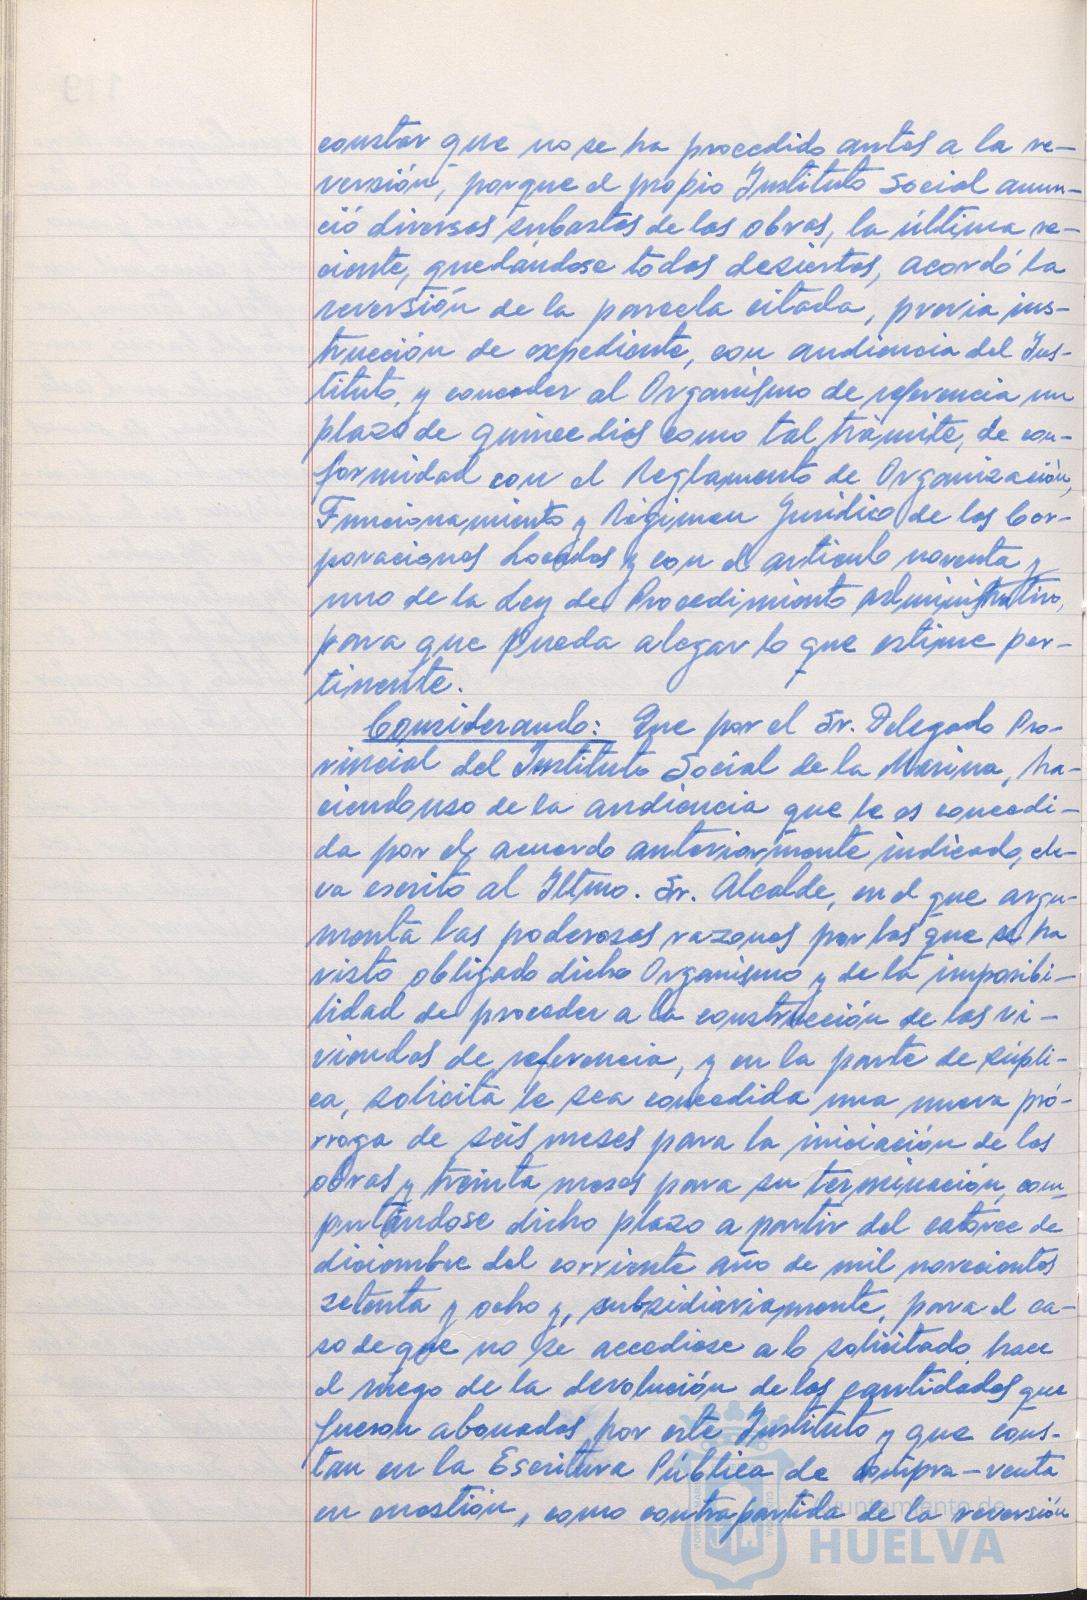 constar que no se ha procedido antes a la re-
versión, porque el propio Instituto Social anun-
ció diversas subastas de las obras, la última re-
ciente, quedándose todas desiertas, acordó la
reversión de la parcela citada, previa ins-
trucción de expediente, con audiencia del Ins-
tituto, y conceder al Organismo de referencia un
plazo de quince días como tal trámite, de con-
formidad con el Reglamento de Organización,
Funcionamiento y Régimen Jurídico de las Cor-
poraciones Locales y con el artículo noventa y
uno de la Ley de Procedimiento administrativo,
para que pueda alegar lo que estime per-
tinente.
Considerando: Que por el Sr. Delegado Pro-
vincial del Instituto Social de la Marina, ha-
ciendo uso de la audiencia que le es concedi-
da por el acuerdo anteriormente indicado, ele-
va escrito al Iltmo. Sr. Alcalde, en el que argu-
menta las poderosas razones por las que se ha
visto obligado dicho Organismo y de la imposibi-
lidad de proceder a la construcción de las vi-
viendas de referencia, y en la parte de súpli-
ca, solicita le sea concedida una nueva pró-
rroga de seis meses para la iniciación de las
obras y treinta meses para su terminación, com-
putándose dicho plazo a partir del catorce de
diciembre del corriente año de mil novecientos
setenta y ocho y, subsidiariamente, para el ca-
so de que no se accediese a lo solicitado, hace
el ruego de la devolución de las cantidades que
fueron abonadas por este Instituto y que cons-
tan en la Escritura Pública de compra-venta
en cuestión, como contrapartida de la reversión
Ayuntamiento de
HUELVA